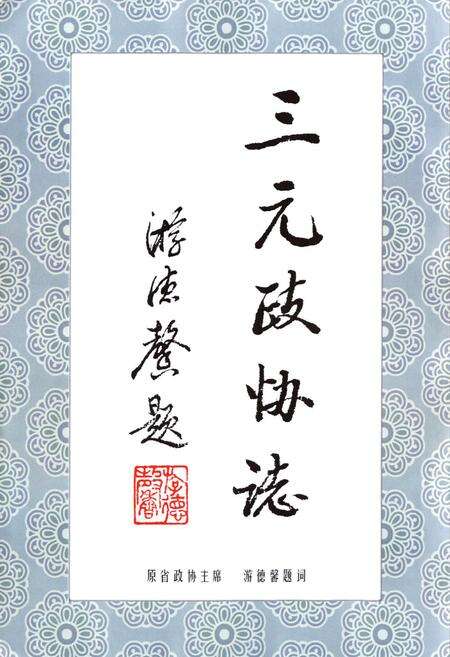 三元政协誌
游德馨题
游德馨
原省政协主席 游德馨题词